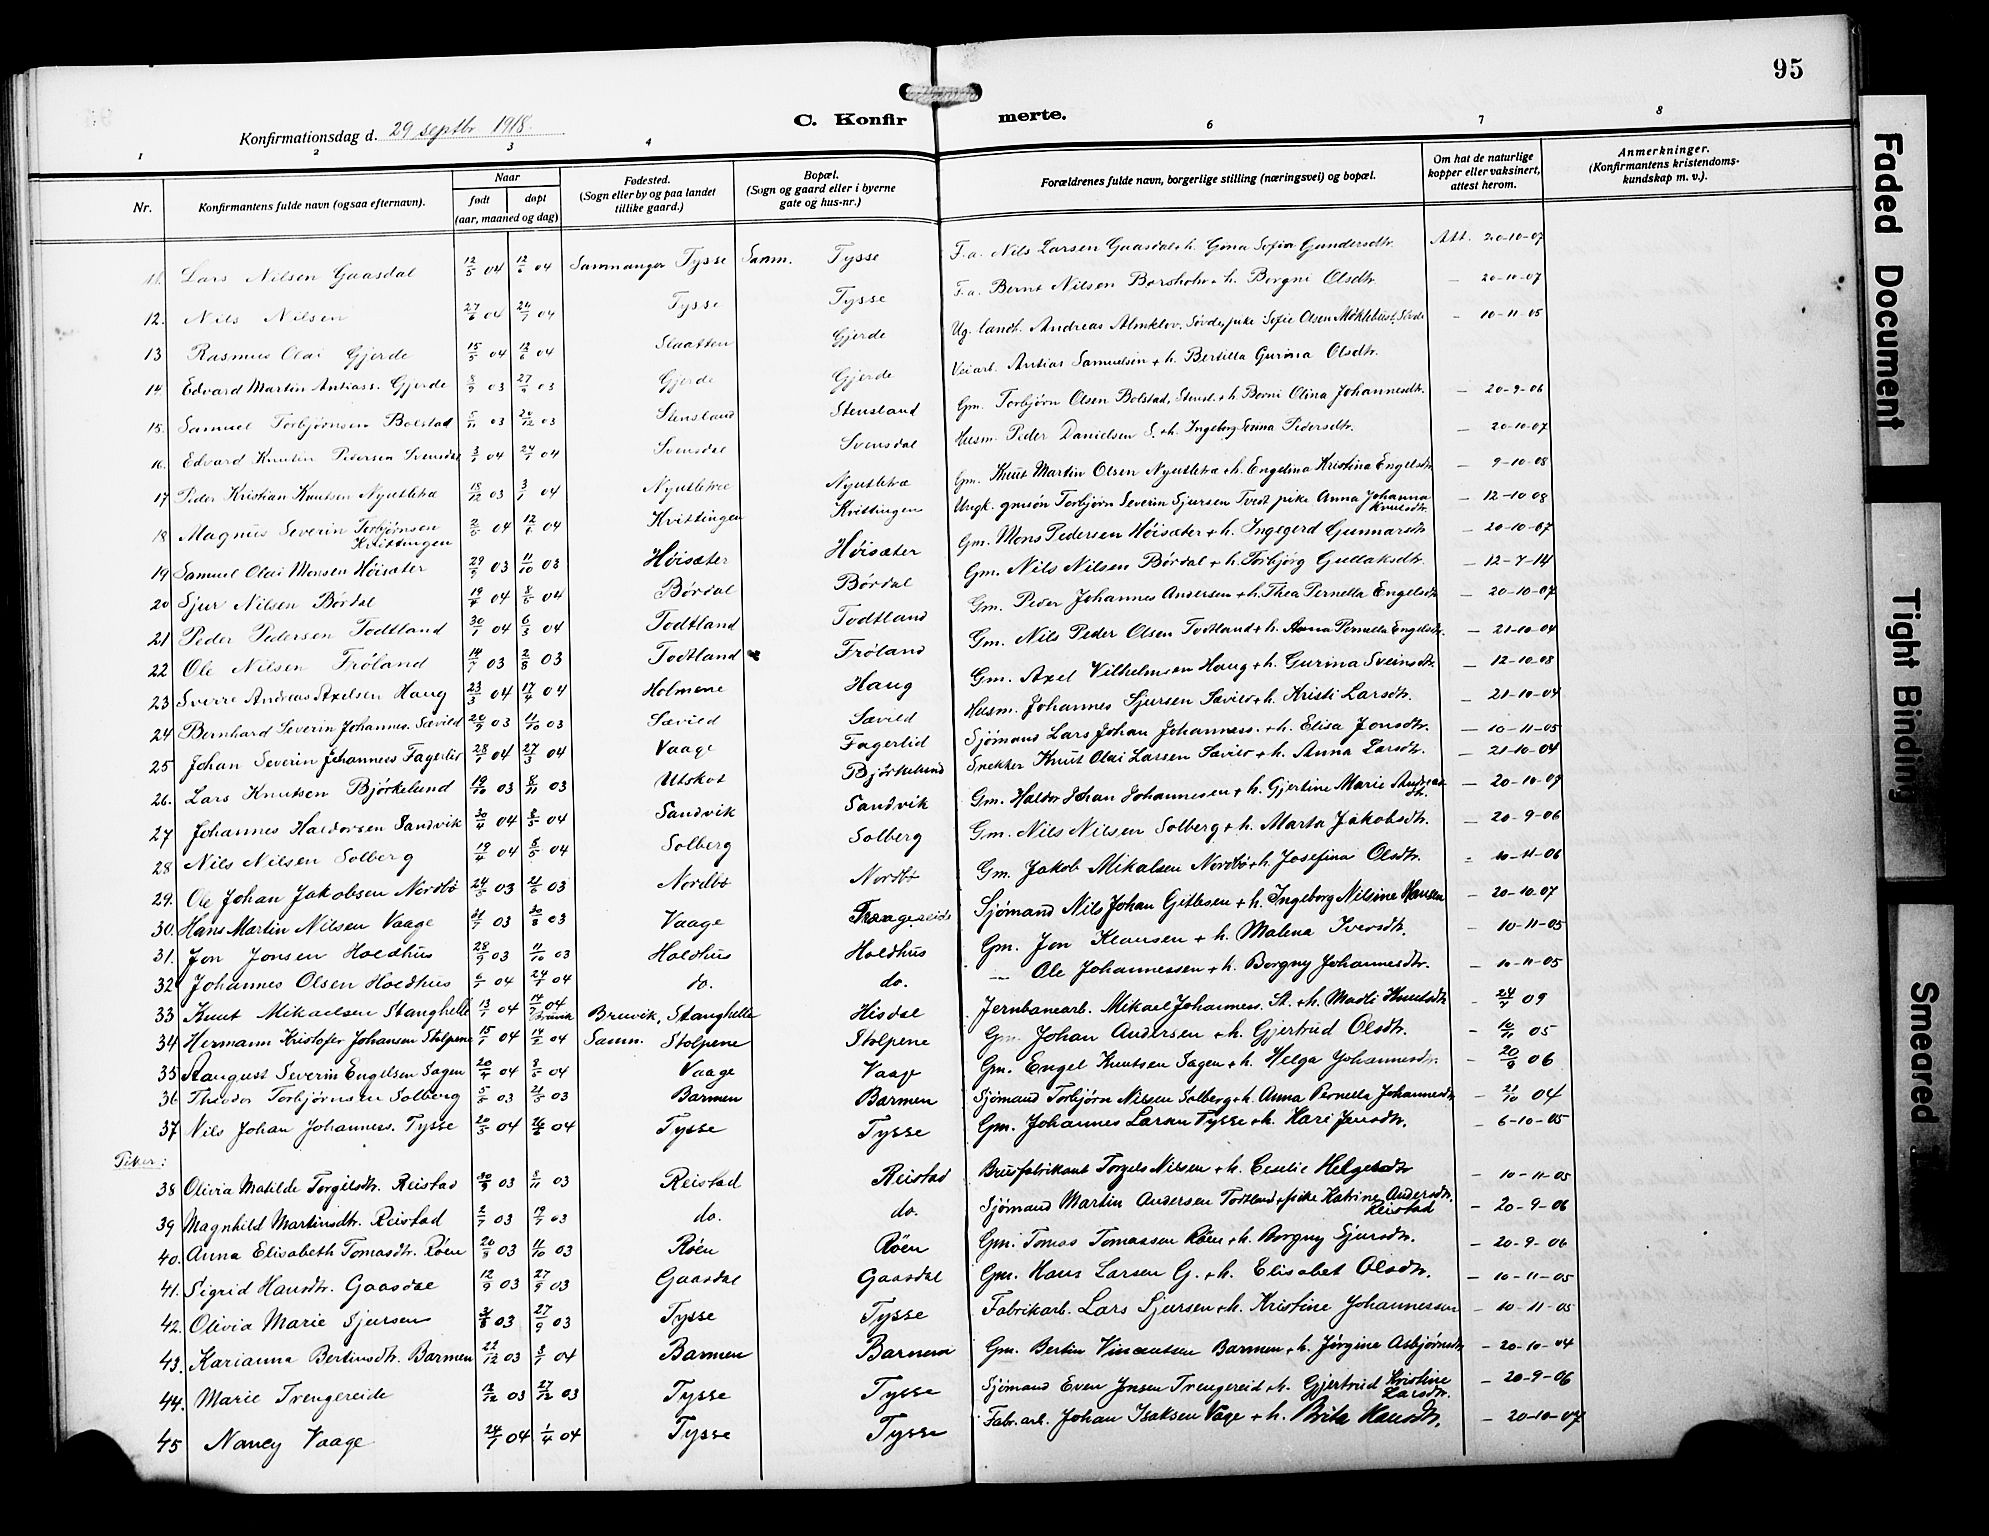 95
C. Konfirmerte.
Konfirmationsdag d. 29 septbr. 1918.
1 2 3 4 6 7 8
Nr. Konfirmantens fulde navn (ogsaa efternavn). Naar født døpt (aar, maaned og dag) Fødested. (Sogn eller by og paa landet tillike gaard.) Bopæl. (Sogn og gaard eller i byerne gate og hus-nr.) Forældrenes fulde navn, borgerlige stilling (næringsvei) og bopæl. Om hat de naturlige kopper eller vaksinert, attest herom. Anmerkninger. (Konfirmantens kristendomskundskap m. v.).
11. Lars Nilsen Gaasdal 12/5 04 12/6 04 Samnanger Tysse Samn. Tysse F.a. Nils Larsen Gaasdal + h. Gina Sofia Gundersdtr. Att. 20-10-07
12. Nils Nilsen 27/6 04 24/7 04 Tysse Tysse F.a. Bernt Nilsen + h. Borgni Olsdtr. – 20-10-07
13 Rasmus Olai Gjerde 15/5 04 12/6 04 Slaatten Gjerde Ug. landh. Andreas Almklov, pike Sofie Olsen – 10-11-05
14. Edvard Martin Antiass. Gjerde 8/9 03 27/9 03 Gjerde Gjerde Veiarb. Antias Samuelsen + h. Bertilla Gurina Olsdtr.
15. Samuel Torbjørnsen Bolstad 5/11 03 20/12 03 Stensland Stensland Gm. Torbjørn Olsen Bolstad, Stensl. + h. Berni Olina Johannesdtr. – 20-9-06
16. Edvard Knutin Pedersen Svensdal 04 04 Svensdal Svensdal Husm. Peder Danielsen S. + h. Ingeborg Pedersdtr. – 20-10-07
17 Peder Kristian Knutsen Nyutletræ 18/12 03 3/1 04 Nyutletræ Nyutletræ Gm. Knut Martin Olsen Nyutletræ + h. Engelina Kristina Engelsdtr. – 9-10-08
18 Magnus Severin Torbjørnsen Kvittingen 2/5 04 12/6 04 Kvittingen Kvittingen Ungk. gmsøn Torbjørn Severin Sjursen Tvedt pike Anna Johanna Knutsdtr. – 12-10 08
19 Samuel Olai Monsen Høisæter 29/9 03 11/10 03 Høisæter Høisæter Gm. Mons Pedersen Høisæter + h. Ingegerd Gunnarsdtr. – 20-10-07
20 Sjur Nilsen Børdal 19/4 04 8/5 04 Børdal Børdal Gm. Nils Nilsen Børdal + h. Torbjørg Gullaksdtr. – 12-7-14
21 Peder Pedersen Todtland 30/1 04 6/3 04 Todtland Todtland Gm. Peder Johannes Andersen + h. Thea Pernella Engelsdtr. – 20-10-07
22 Ole Nilsen Frøland 14/7 03 2/8 03 Todtland Frøland Gm. Nils Peder Olsen Todtland + h. Anna Pernella Engelsdtr. – 21-10-04
23 Sverre Andreas Axelsen Haug 23/3 04 17/4 04 Holmene Haug Gm. Axel Vilhelmsen Haug + h. Gurina Sveinsdtr. – 12-10-08
24 Bernhard Severin Johannes. Sævild 20/9 03 11/10 03 Sævild Sævild Husm. Johannes Sjursen Sævild + h. Kristi Larsdtr. – 21-10-04
25 Johan Severin Johannes Fagerlid 28/1 04 27/3 04 Vaage Fagerlid Sjømand Lars Johan Johanness. + h. Elisa Jonsdtr. – 10-11-05
26. Lars Knutsen Bjørkelund 19/10 03 8/11 03 Utskot Bjørkelund Snekker Knut Olai Larsen Sævild + h. Anna Larsdtr. – 21-10-04
27 Johannes Haldorsen Sandvik 04 8/5 04 Sandvik Sandvik Gm. Haldor Johan Johannesen + h. Gjertine Marie – 20-10-07
28 Nils Nilsen Solberg 19/4 04 8/5 04 Solberg Solberg Gm. Nils Nilsen Solberg + h. Marta Jakobsdtr. – 20-9-06
29. Ole Johan Jakobsen Nordbø 03 21/6 03 Nordbø Nordbø Gm. Jakob Mikalsen Nordbø + h. Josefina Olsdtr. 10-11-06
30. Hans Martin Nilsen Vaage 31/7 03 30/8 03 Vaage Trængereid Sjømand Nils Johan Gitlesen + h. Ingeborg Nilsine Hansen – 20-10-07
31. Jon Jonsen Holdhus 28/9 03 11/10 03 Holdhus Holdhus Gm. Jon Klausen + h. Malena Iversdtr. – 10-11-05
32 Johannes Olsen Holdhus 6/1 04 24/1 04 do. do. — Ole Johannessen + h. Borgny Johannesdtr. – 10-11-05
33 Knut Mikaelsen Stanghelle 13/1 04 04 Bruvik Bruvik, Stanghelle Hisdal Jernbanearb. Mikael Johanness. St. + h. Madli Knutsdtr. – 09
34 Hermann Kristofer Johansen Stølpene 15/1 04 14/2 04 Samn. Stølpene Stølpene Gm. Johan Andersen + h. Gjertrud Olsdtr. – 05
35 August Severin Engelsen Sagen 20/4 04 8/5 04 Vaage Vaage Gm. Engel Knutsen Sagen + h. Helga Johannesdtr. – 20/9 06
36 Theodor Torbjørnsen Solberg 03 21/5 03 Barmen Barmen Sjømand Torbjørn Nilsen Solberg + h. Anna Pernella Johannesdtr. – 21/10 04
37 Nils Johan Johanness. Tysse 20/5 04 04 Tysse Tysse Gm. Johannes Larsen Tysse + h. Kari Jensdtr. – 6-10-05
Piker:
38 Olivia Matilde Torgilsdtr. Reistad 30/9 03 8/11 03 Reistad Reistad Brusfabrikant Torgels Nilsen + h. Cecilie Helgesdtr – 10-11-05
39 Magnhild Martinsdtr. Reistad 2/7 03 19/7 03 do. do. Sjømand Martin Andersen Todtland + pike Katrine Andersdtr. Reistad – 20-9-06
40. Anna Elisabeth Tomasdtr. Røen 20/9 03 11/10 03 Røen Røen Gm. Tomas Tomassen Røen + h. Borgny Sjursdtr. – 20-9-06
41. Sigrid Hansdtr. Gaasdal 12/9 03 27/9 03 Gaasdal Gaasdal Gm. Hans Larsen G. + h. Elisabet Olsdtr. – 10-11-05
42. Olivia Marie Sjursen 03 27/9 03 Tysse Tysse Fabrikarb. Lars Sjursen + h. Kristine Johannessen – 10-11-05
43. Karianna Bertinsdtr. Barmen 22/12 03 3/1 04 Barmen Barmen Gm. Bertin Vincentsen Barmen + h. Jørgine Asbjørnsdtr – 20-10-04
44. Marie Trengereide 12/12 03 27/12 03 Tysse Tysse Sjømand Even Jonsen Trengereid + h. Gjertrud Kristine Larsdtr. – 20-9-06
45 Nancy Vaage 24/1 04 1/4 04 Tysse Tysse Fabr.arb. Johan Isaksen Vage + h. Brita Hansdtr. – 20-10-07
Faded Document
Tight Binding
Smeared I